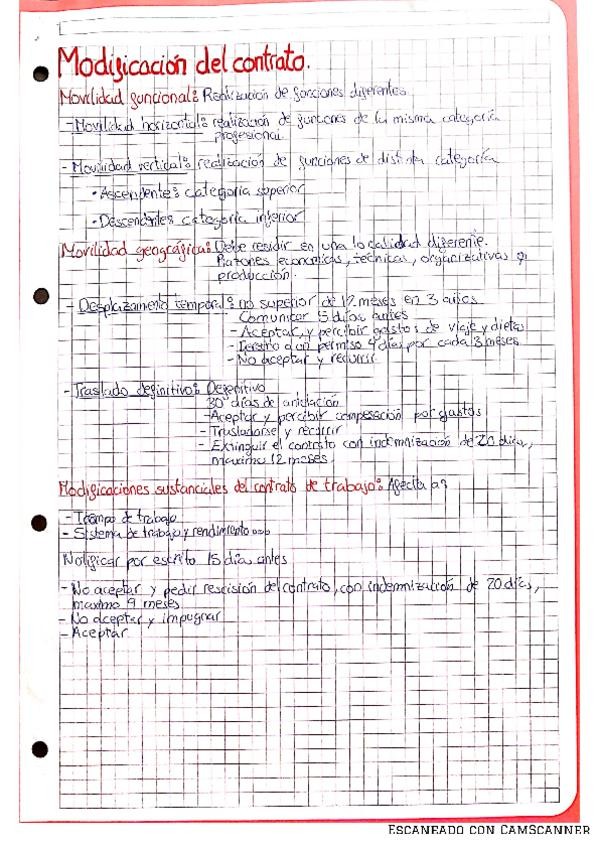 Modificación del contrato.
Movilidad funcional: Realización de funciones diferentes.
- Movilidad horizontal: realización de funciones de la misma categoría
profesional.
- Movilidad vertical: realización de funciones de distinta categoría
• Ascendente: categoría superior
• Descendente: categoría inferior
Movilidad geográfica: Debe residir en una localidad diferente.
Razones económicas, técnicas, organizativas o
producción.
- Desplazamento temporal: no superior de 12 meses en 3 años
Comunicar 5 días antes
- Aceptar, y percibir gastos de viaje y dietas
- Derecho a un permiso 4 días por cada 3 meses
- No aceptar y recurrir
- Traslado definitivo:
30 días de antelación
- Aceptar y percibir compesación por gastos
- Trasladarse y recurrir
- Extinguir el contrato con indemnización de 20 días,
maximo 12 meses
Modificaciones sustanciales del contrato de trabajo: Afecta a:
- Tiempo de trabajo
- Sistema de trabajo y rendimiento...
Notificar por escrito 15 días antes
- No aceptar y pedir rescisión del contrato, con indemnización de 20 días,
maximo 9 meses
- No aceptar y impugnar
- Aceptar
ESCANEADO CON CAMSCANNER